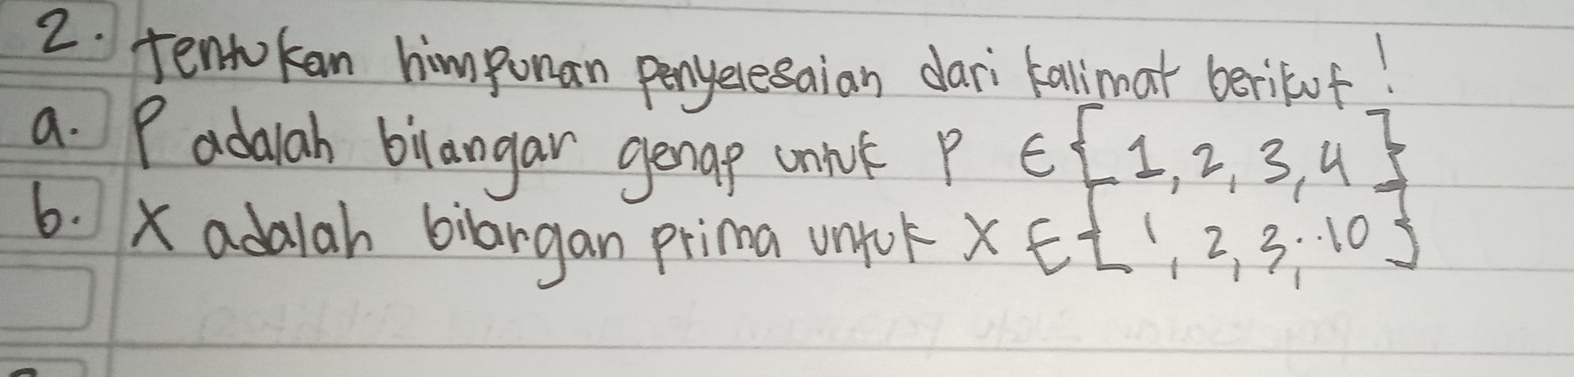 2. Tentukan himpunan penyelesaian dari kalimat berikut!
a. P adalah bilangan genap untuk P ∈ {1, 2, 3, 4}
b. X adalah bilangan prima untuk X ∈ {1, 2, 3, ..10}